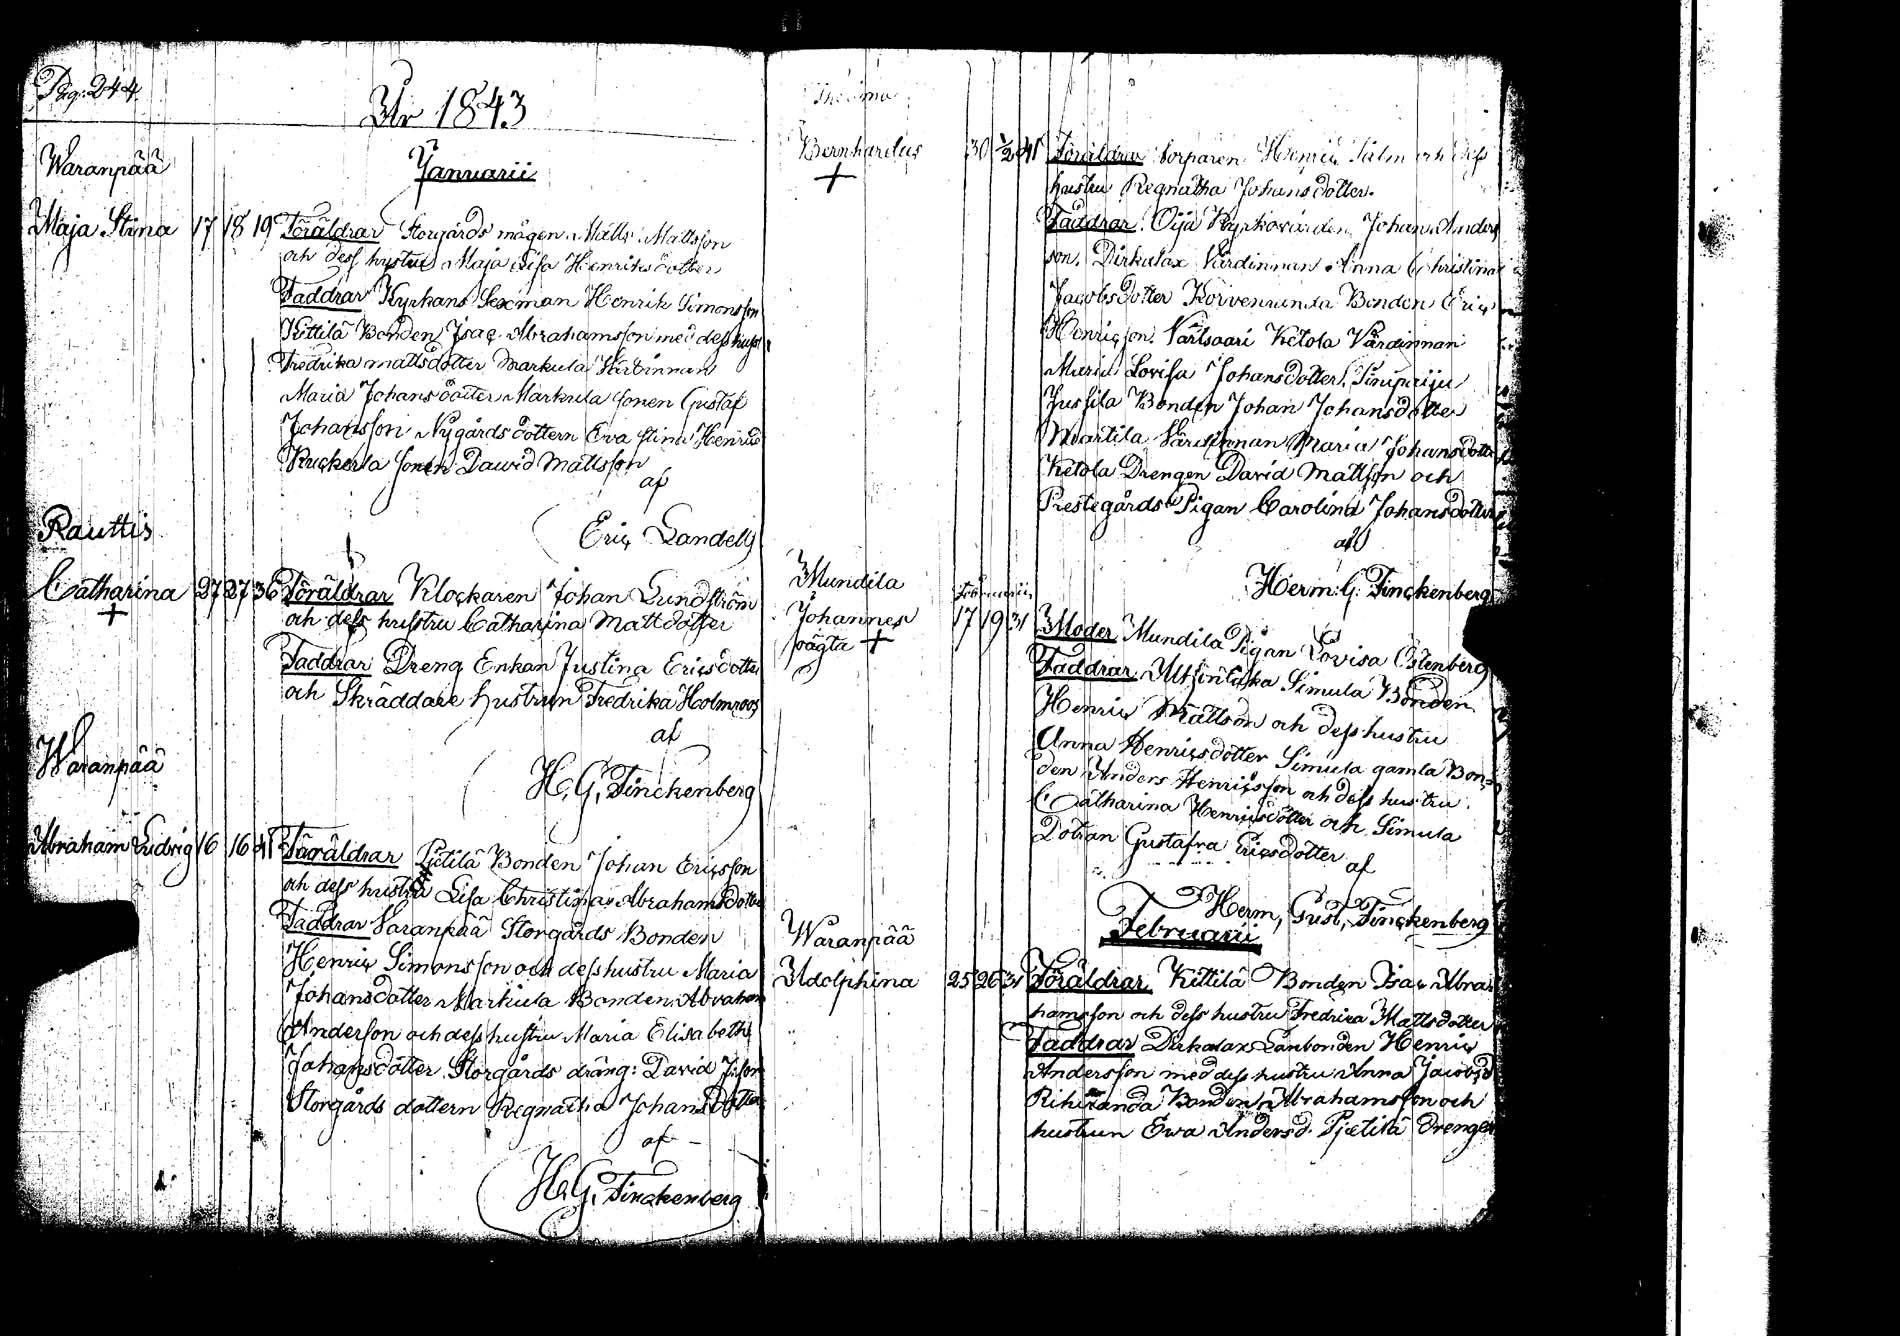 Pag. 244
År 1843
Waranpää
Januarii
Maja Stina 17 18 19 Föräldrar Storgårds mågen Matts Mattsson
och dess hustru Maja Lisa Henriksdotter
Faddrar Kyrkans Sexman Henrik Simonsson
Kittilä Bonden Isac Abrahamsson med dess hust
Fredrika mattsdotter Markula Värdinnan
Maria Johansdotter Markula sonen Gustaf
Johansson Nygårds dottern Eva Stina Henrics
sonen Dawid Mattsson
af
Eric Landell
Rauttis
Catharina 27 27 36 Föräldrar Klockaren Johan Lundström
och dess hustru Catharina Mattdotter
Faddrar Dreng Enkan Justina Ericsdotter
och Skräddare hustrun Fredrika Holmroos
af
H. G. Finckenberg
Waranpää
Abraham Ludvig 16 16 41 Föräldrar Pietilä Bonden Johan Ericsson
och dess hustru Lisa Christina Abrahamsdotter
Faddrar Varanpää Storgårds Bonden
Henric Simonsson och dess hustru Maria
Johansdotter Markula Bonden Abraham
Anderson och dess hustru Maria Elisabeth
Johansdotter Storgårds dräng: David
Storgårds dottern Regnatha Johans Dotter
af
H. G. Finckenberg
Bernhardus 30 1/2 41 Föräldrar torparen Henric Palm och dess
hustru Regnatha Johansdotter.
Faddrar: Öijä Kyrkovärden Johan Anders
son. Dirkalax Värdinnan Anna Christina
Jacobsdotter Korvenranda Bonden Eric
Henricson. Vartsaari Ketola Värdinnan
Maria Lovisa Johansdotter
Jussila Bonden Johan Johansdotter
Martila Värdinnan Maria Johansdotter
Ketola Drengen David Mattson och
Prestegårds Pigan Carolina Johansdotter
af
Herm: G. Finckenberg
Mundila
Februarii
Johannes 17 19 31 Moder Mundila Pigan Lovisa Östenberg
oägta
Faddrar Simula Bonden
Henric Mattson och dess hustru
Anna Henricsdotter Simula gamla Bon=
den Anders Henricsson och dess hustru
Catharina Henricsdotter och Simula
Dotran Gustafva Ericsdotter
af
Herm, Gust, Finckenberg
Februarii
Waranpää
Adolphina 25 26 31 Föräldrar Kittilä Bonden Isac Abra
hamsson och dess hustru Fredrica Mattsdotter
Faddrar Dirkalax Lånbonden Henric
Andersson med dess hustru Anna Jacobsd
Bonden Abrahamsson och
hustrun Ewa Andersd. Pietilä Drengen